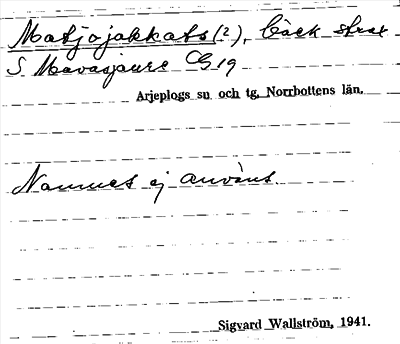 Matjojakkats (2), bäck strax
S. Mavasjaure C8 19
Arjeplogs sn och tg, Norrbottens län.
Namnet ej använs.
Sigvard Wallström, 1941.